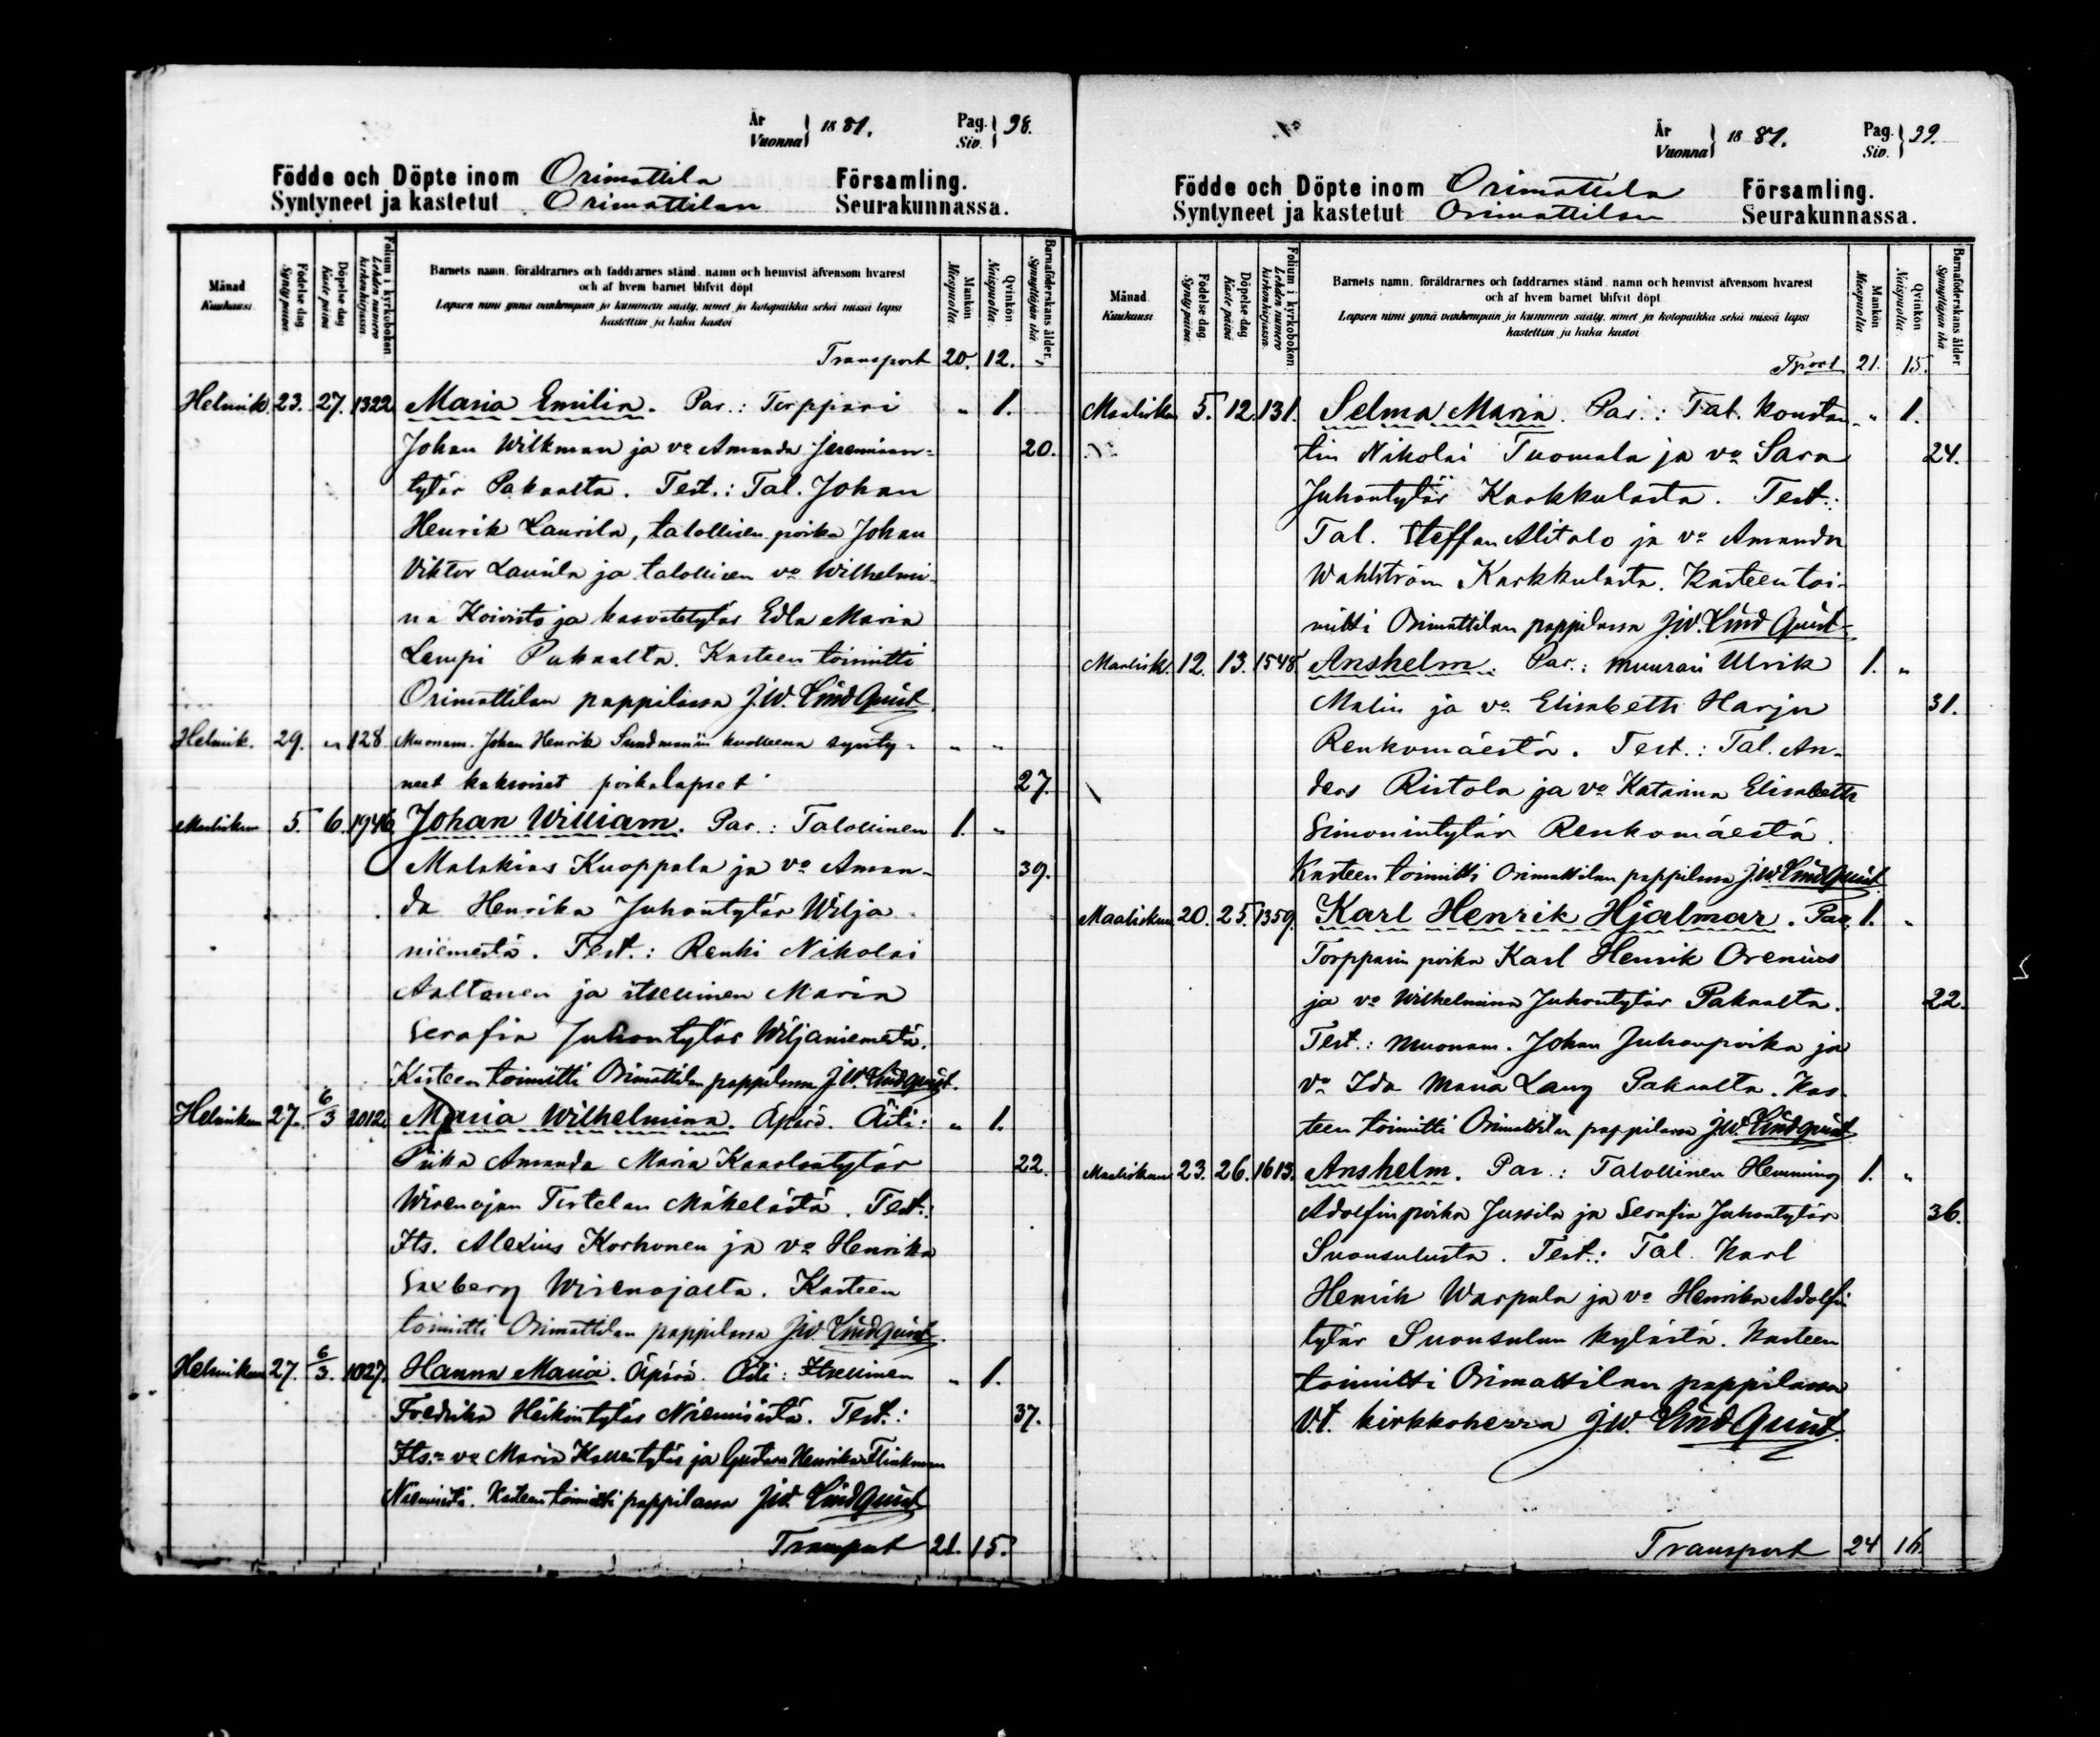 År
Vuonna } 1881. Pag.
Siv. } 38.
Födde och Döpte inom Orimattila Församling.
Syntyneet ja kastetut Orimattilan Seurakunnassa.
Månad
Kuukausi
Födelse dag
Syntypäivä
Döpelse dag
Kaste päivä
Folium i kyrkoboken
Lehden numero kirkonkirjassa.
Barnets namn, föräldrarnes och faddrarnes stånd, namn och hemvist äfvensom hvarest
och af hvem barnet blifvit döpt
Lapsen nimi ynnä vanhempain ja kummein sääty, nimet ja kotopaikka sekä missä lapsi
kastettiin ja kuka kastoi
Mankön
Miespuolia.
Qvinkön
Naispuolia.
Barnaföderskans ålder.
Synnyttäjän ikä
Transport 20. 12. "
Helmik. 23. 27. 1322 Maria Emilia. Par.: Torppari " 1.
Johan Wilkman ja vo Amanda Jeremian= 20.
tytär Pakaalta. Test.: Tal. Johan
Henrik Laurila, talollisen poika Johan
Viktor Laurila ja talollisen vo Wilhelmi-
na Koivisto ja kasvatetytär Edla Maria
Lempi Pakaalta. Kasteen toimitti
Orimattilan pappilassa J.W. Lindquist.
Helmik. 29. " 128 Muonam. Johan Henrik Sundmanin kuolleena synty- " "
neet kaksoiset poikalapset 27.
Maaliskuu 5. 6. 1946 Johan William. Par.: Talollinen 1. "
Malakias Kuoppala ja vo Aman- 39.
da Henrika Juhontytär Wilja-
niemestä. Test.: Renki Nikolai
Aaltonen ja itsellinen Maria
Serafia Juhontytär Wiljaniemestä.
Kasteen toimitti Orimattilan pappilassa J.W. Lindquist.
Helmikuu 27. 6/3 2012 Maria Wilhelmina. Äpärä. Äiti: " 1.
Piika Amanda Maria Kaarlontytär 22.
Wirenojan Tertelan Mäkelästä. Test.:
Its. Alexius Korhonen ja vo Henrika
Saxberg Wirenojalta. Kasteen
toimitti Orimattilan pappilassa J.W. Lindquist.
Helmikuu 27. 6/3. 1027. Hanna Maria. Äpärä. Äiti: Itsellinen " 1.
Fredrika Heikintytär Niemisistä. Test.: 37.
Its.n vo Maria Kallentytär ja Gustava Henrika Flinkman
Niemistä. Kasteen toimitti pappilassa J.W. Lindquist
Transport 21. 15.
År
Vuonna } 1881. Pag.
Siv. } 39.
Födde och Döpte inom Orimattila Församling.
Syntyneet ja kastetut Orimattilan Seurakunnassa.
Månad
Kuukausi
Födelse-dag.
Syntypäivä
Döpelse-dag.
Kaste päivä
Folium i kyrkoboken
Lehden numero kirkonkirjassa.
Barnets namn, föräldrarnes och faddrarnes stånd, namn och hemvist äfvensom hvarest
och af hvem barnet blifvit döpt
Lapsen nimi ynnä vanhempain ja kummein sääty, nimet ja kotopaikka sekä missä lapsi
kastettiin ja kuka kastoi
Mankön
Miespuolia
Qvinkön
Naispuolia
Barnaföderskans ålder
Synnyttäjän ikä
Tport 21. 15.
Maaliskuu 5. 12. 131. Selma Maria. Par.: Tal. Konstan- " 1.
tin Nikolai Tuomala ja vo Sara 24.
Juhontytär Karkkulasta. Test.:
Tal. Steffan Alitalo ja vo Amanda
Wahlström Karkkulasta. Kasteen toi-
mitti Orimattilan pappilassa J.W. Lindquist
Maalisk. 12. 13. 1548 Anshelm. Par.: muurari Ulrik 1. "
Malin ja vo Elisabeth Harju 31.
Renkomäestä. Test.: Tal. An-
ders Ristola ja vo Katarina Elisabeth
Simonintytär Renkomäestä.
Kasteen toimitti Orimattilan pappilassa J.W. Lindquist
Maaliskuu 20. 25. 1359. Karl Henrik Hjalmar. Par. 1. "
Torpparin poika Karl Henrik Orenius
ja vo Wilhelmina Juhontytär Pakaalta. 22.
Test.: muonam. Johan Juhonpoika ja
vo Ida Maria Lang Pakaalta. Kas-
teen toimitti Orimattilan pappilassa J.W. Lindquist
Maaliskuu 23. 26. 1613. Anshelm. Par.: Talollinen Hemming 1. "
Adolfinpoika Jussila ja Serafia Juhontytär 36.
Suonsulusta. Test.: Tal. Karl
Henrik Warpula ja vo Henrika Adolfin
tytär Suonsulun kylästä. Kasteen
toimitti Orimattilan pappilassa
v.t. kirkkoherra J.W. Lindquist.
Transport 24 16.